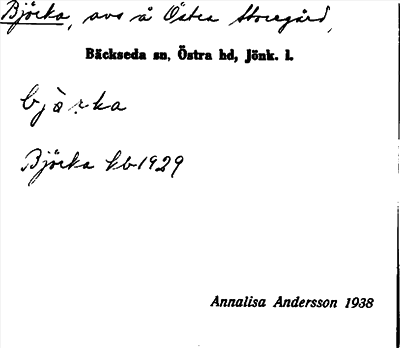 Björka, avs å Östra Storegård,
Bäckseda sn, Östra hd, Jönk. l.
bjòrka
Björka kb 1929
Annalisa Andersson 1938